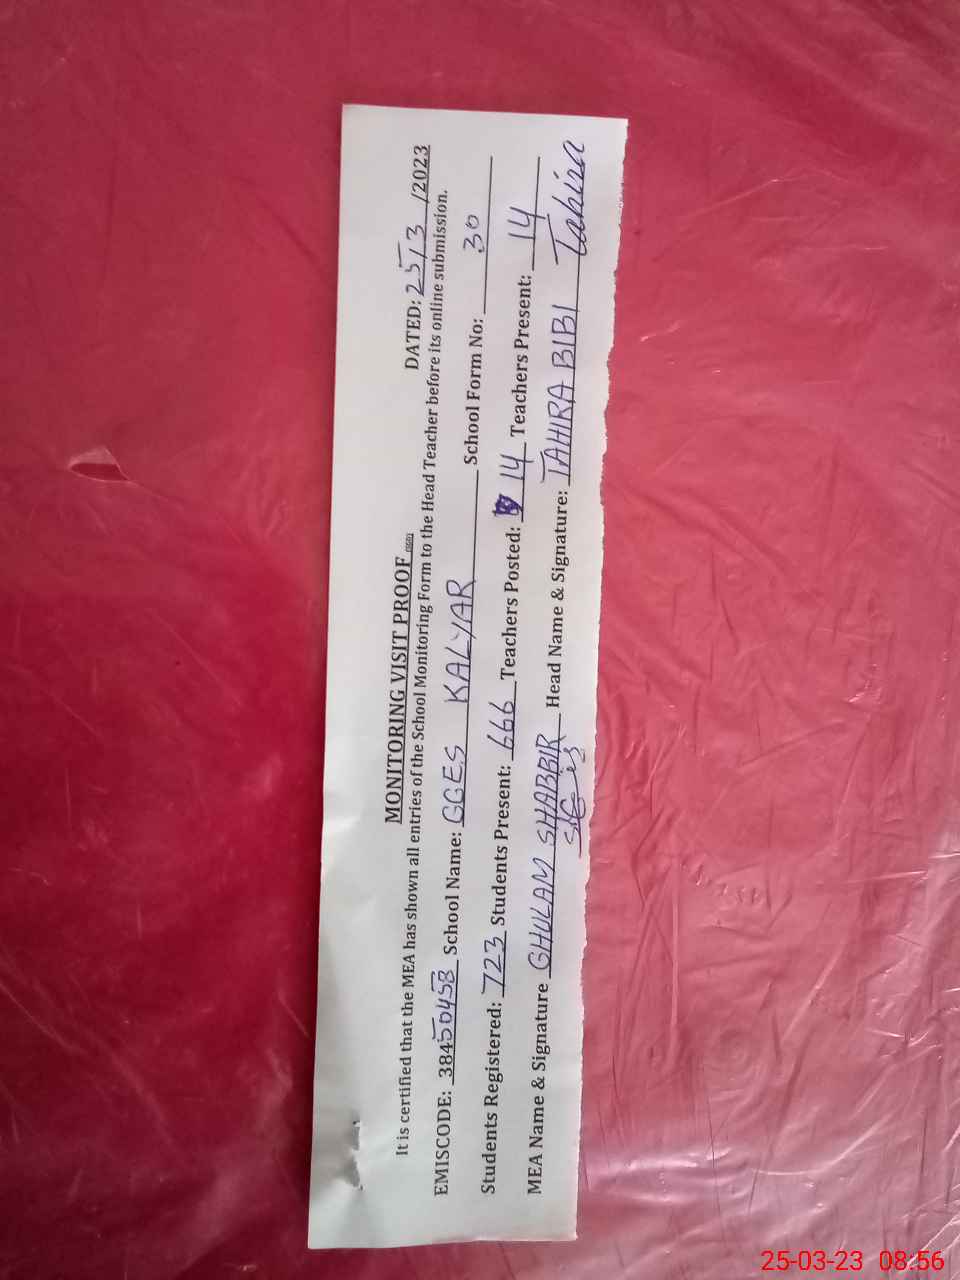 MONITORING VISIT PROOF
DATED: 25/3/2023
It is certified that the MEA has shown all entries of the School Monitoring Form to the Head Teacher before its online submission.
EMISCODE: 38450458 School Name: GGES KALYAR School Form No: 30
Students Registered: 723 Students Present: 666 Teachers Posted: 14 Teachers Present: 14
MEA Name & Signature GHULAM SHABBIR Head Name & Signature: TAHIRA BIBI Tahira
25-03-23 08:56